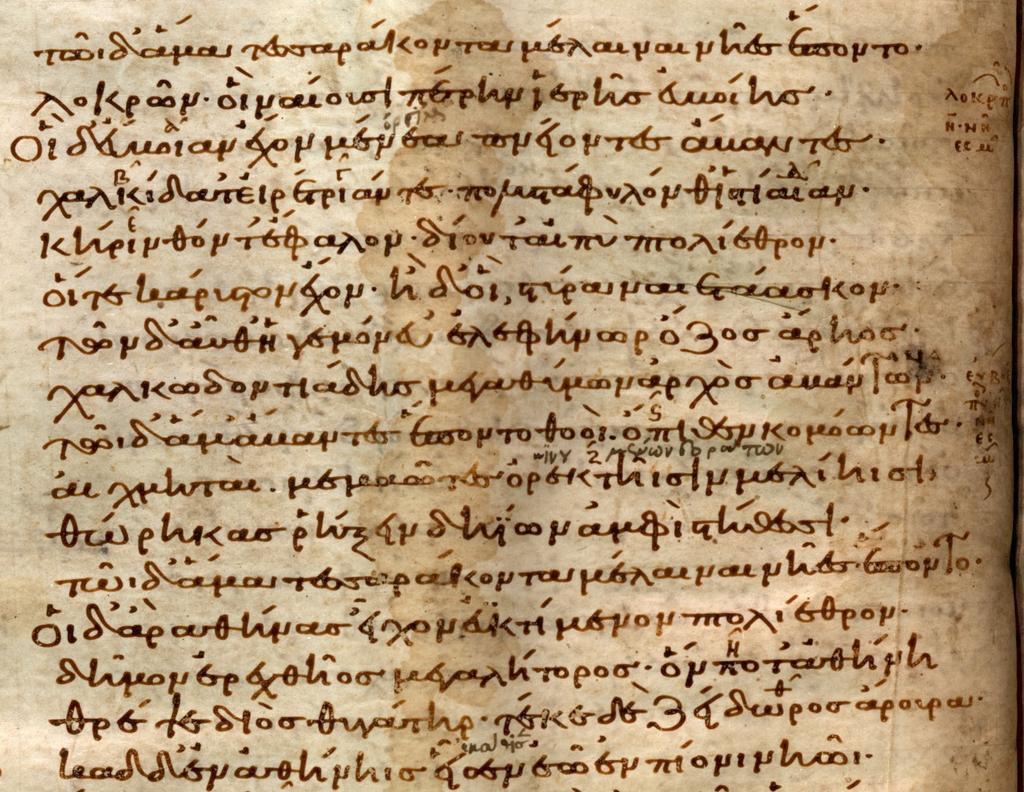 τῶι δ' ἅμα τεσσαράκοντα μέλαιναι νῆες ἕποντο·
λοκρῶν· οἳ ναίουσι πέρην ἱερῆς εὐβοίης·
Οἳ δ' εὔβοιαν ἔχον μένεα πνείοντες ἄβαντες·
χαλκίδα τ' εἰρέτριάν τε· πολυστάφυλόν θ' ἱστίαιαν·
κήρινθόν τ' ἔφαλον· δίου τ' αἰπὺ πτολίεθρον·
οἵ τε κάρυστον ἔχον· ἠδ' οἳ στύρα ναιετάασκον·
τῶν δ' αὖθ' ἡγεμόνευ' ἐλεφήνωρ ὄζος ἄρηος·
χαλκωδοντιάδης μεγαθύμων ἀρχὸς ἀβάντων·
τῶι δ' ἅμ' ἄβαντες ἕποντο θοοὶ· ὄπιθεν κομόωντες·
αἰχμηταὶ· μεμαῶτες ὀρεκτῆισιν μελίηισι
θώρηκας ῥήξειν δηΐων ἀμφὶ στήθεσι·
τῶι δ' ἅμα τεσσαράκοντα μέλαιναι νῆες ἕποντο·
Οἳ δ' ἄρ' ἀθήνας εἶχον ἐϋκτίμενον πτολίεθρον·
δῆμον ἐρεχθῆος μεγαλήτορος· ὅν ποτ' ἀθήνη
θρέψε διὸς θυγάτηρ· τέκε δὲ ζείδωρος ἄρουρα·
καδδ' ἐν ἀθήνηις εἷσεν ἑῶ ἐν πίονι νηῶι·